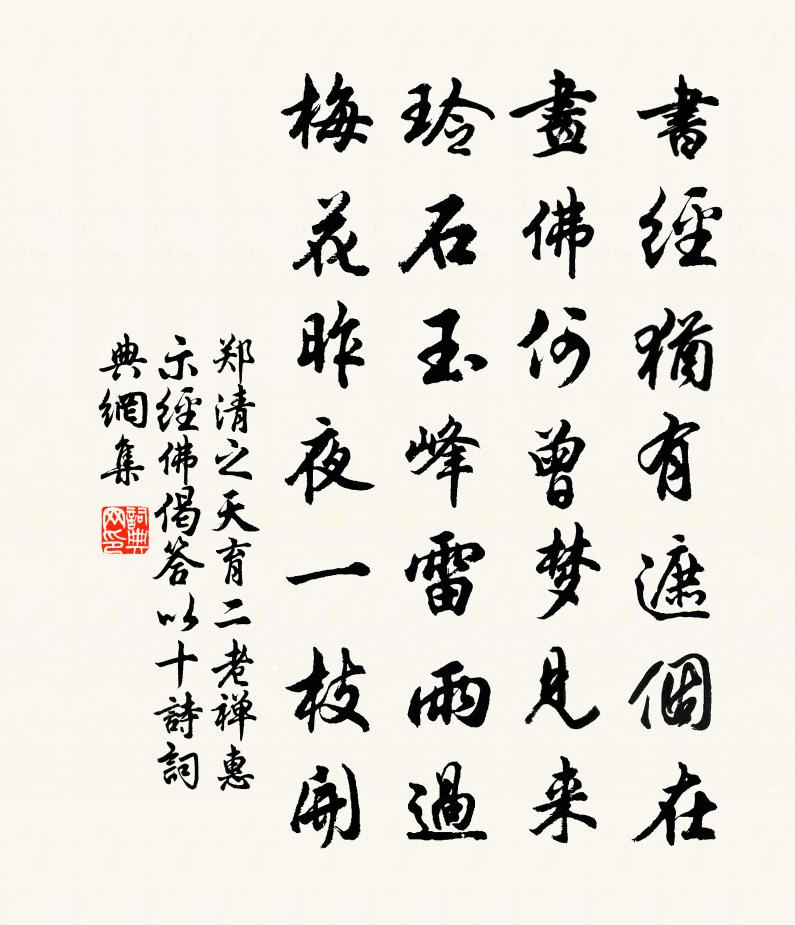 書經猶有遮個在
畫佛何曾梦見来
玲石玉峰雷雨過
梅花昨夜一枝開
郑清之天育二老禅惠
示經佛偈答以十詩詞
典網集
詞典网印